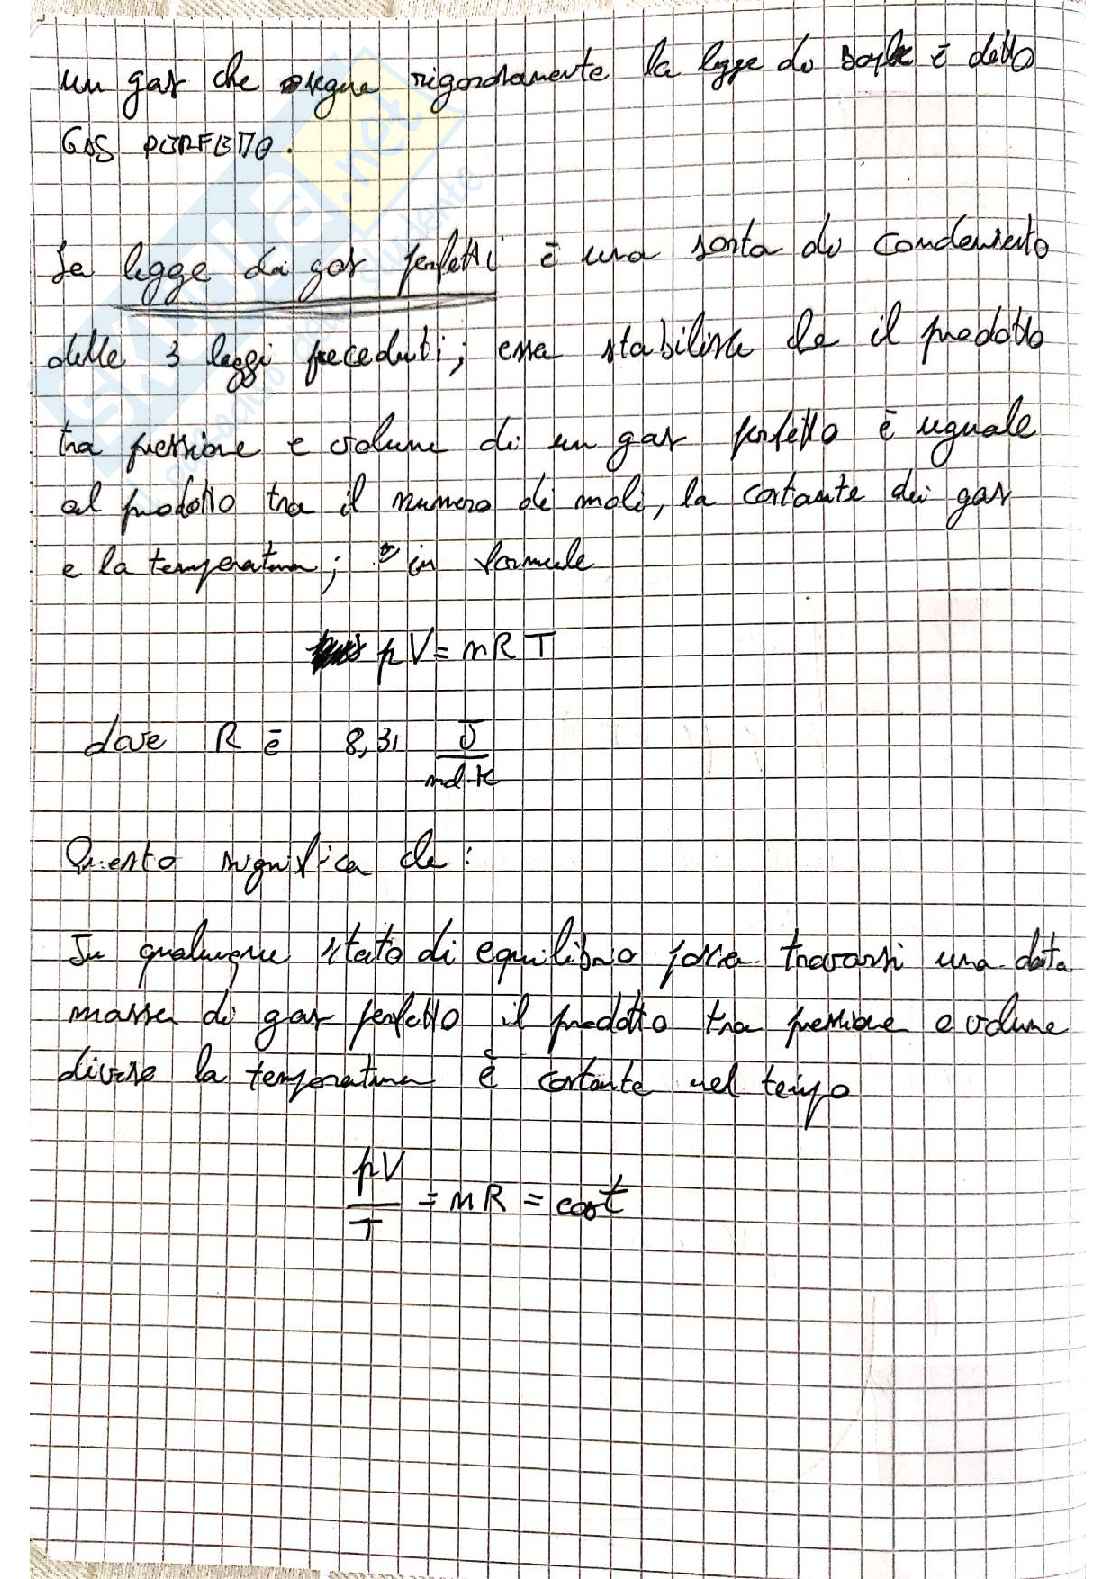 un gas che segue rigorosamente la legge di Boyle è detto
GAS PERFETTO.
La legge dei gas perfetti è una sorta di condensato
delle 3 leggi precedenti; essa stabilisce che il prodotto
tra pressione e volume di un gas perfetto è uguale
al prodotto tra il numero di moli, la costante dei gas
e la temperatura; in formule
pV = nRT
dove R è 8,31 J/mol·K
Questo significa che:
In qualunque stato di equilibrio possa trovarsi una data
massa di gas perfetto il prodotto tra pressione e volume
diviso la temperatura è costante nel tempo
pV/T = nR = cost